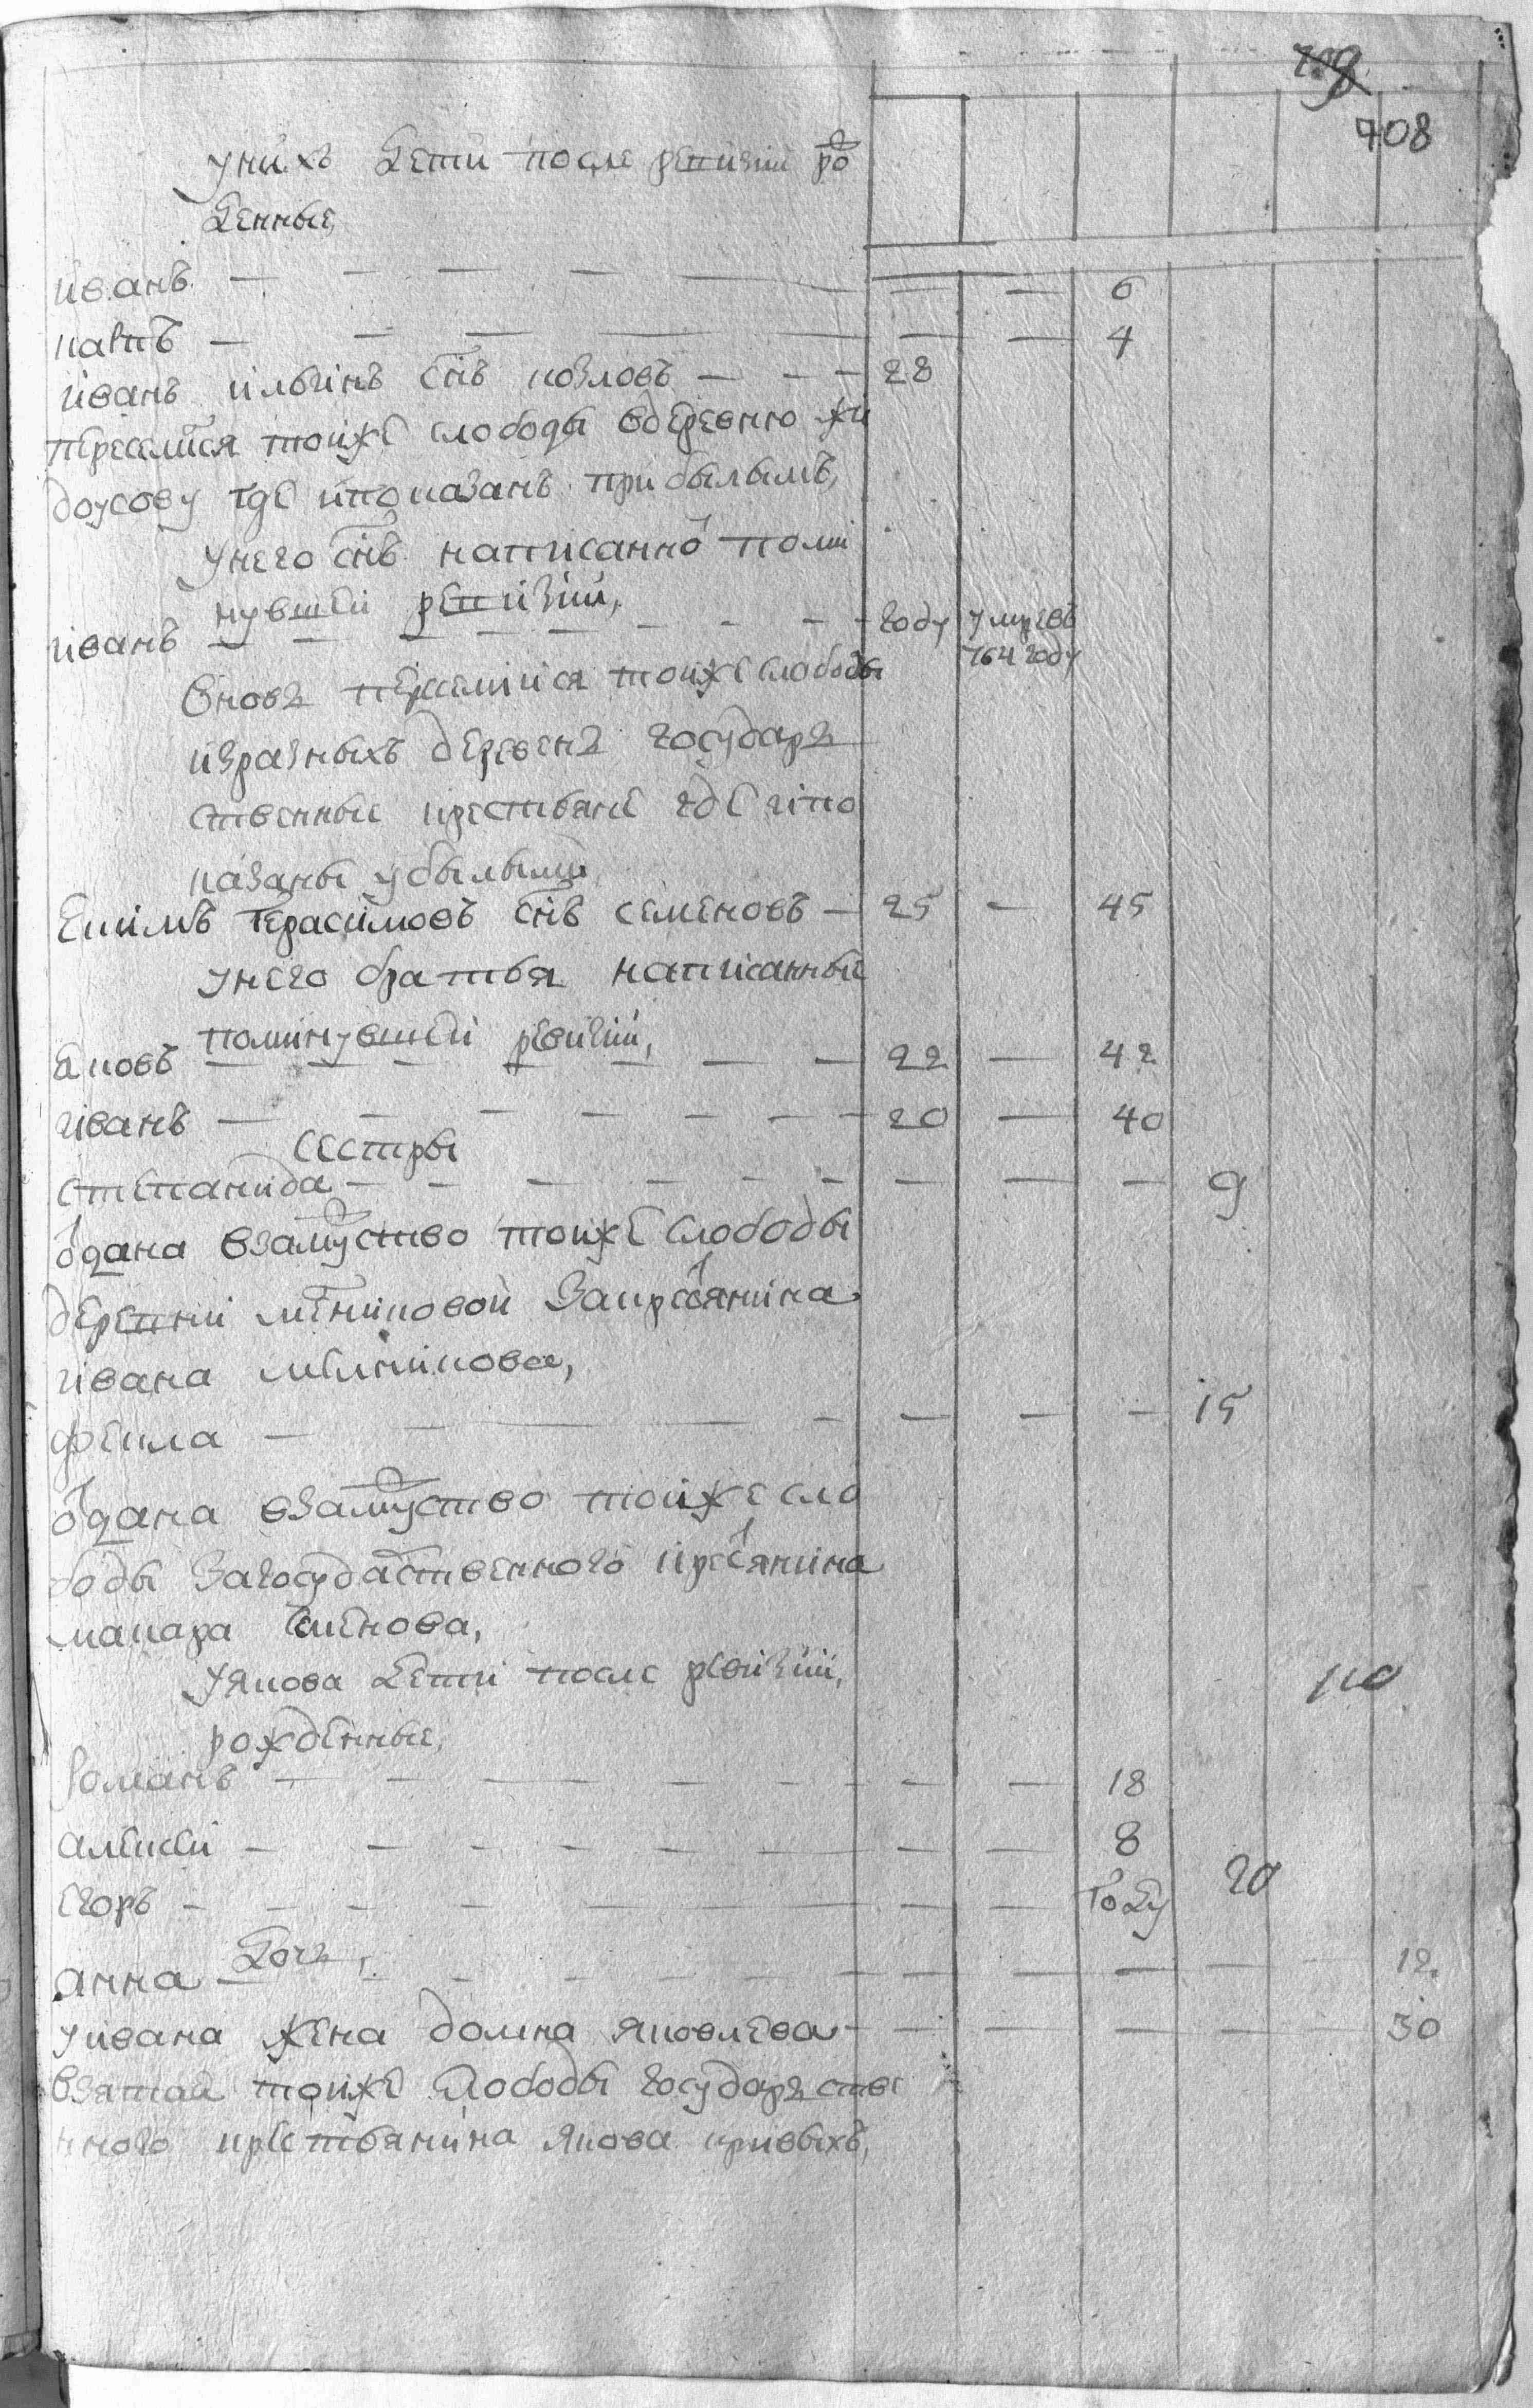 709
708
унихъ дети после ревизии ро
денные,
иванъ — — — — — — — 6
карпъ — — — — — — — 4
иванъ ильинъ снъ козловъ — — — 28
переселился тоиже слободы вдеревню жи
доусову где ипоказанъ прибылымъ,
унего снъ написанно помі
нувшеи ревизии,
иванъ — — — — — — году умревъ
764 году
вновь переселиися тоиже слободы
изразныхъ деревень государь
ственные крестьяне где ипо
казаны убылыми,
Екимъ Герасимовъ снъ семеновъ — 25 — 45
унего братья написанные
поминувшеи ревизии,
Яковъ — — — — — — 22 — 42
иванъ — — — — — — 20 — 40
сестры
степанида — — — — — — — — — 9
одана взамуство тоиже слободы
деревни менщиковой закрестянина
ивана менщикова,
фекла — — — — — — — 15
одана взамуство тоиже сло
боды загосударственного крестянина
макара семенова,
уякова дети после ревизии,
рожденные,
романъ — — — — — — — — 18
алексеи — — — — — — — — 8
егоръ — — — — — — — — году
110
20
дочь,
анна — — — — — — — — — — — 12
уивана жена домна яковлева — — — — — — 30
взятая тоиже слободы государьстве
нного крестьянина якова кривыхъ,